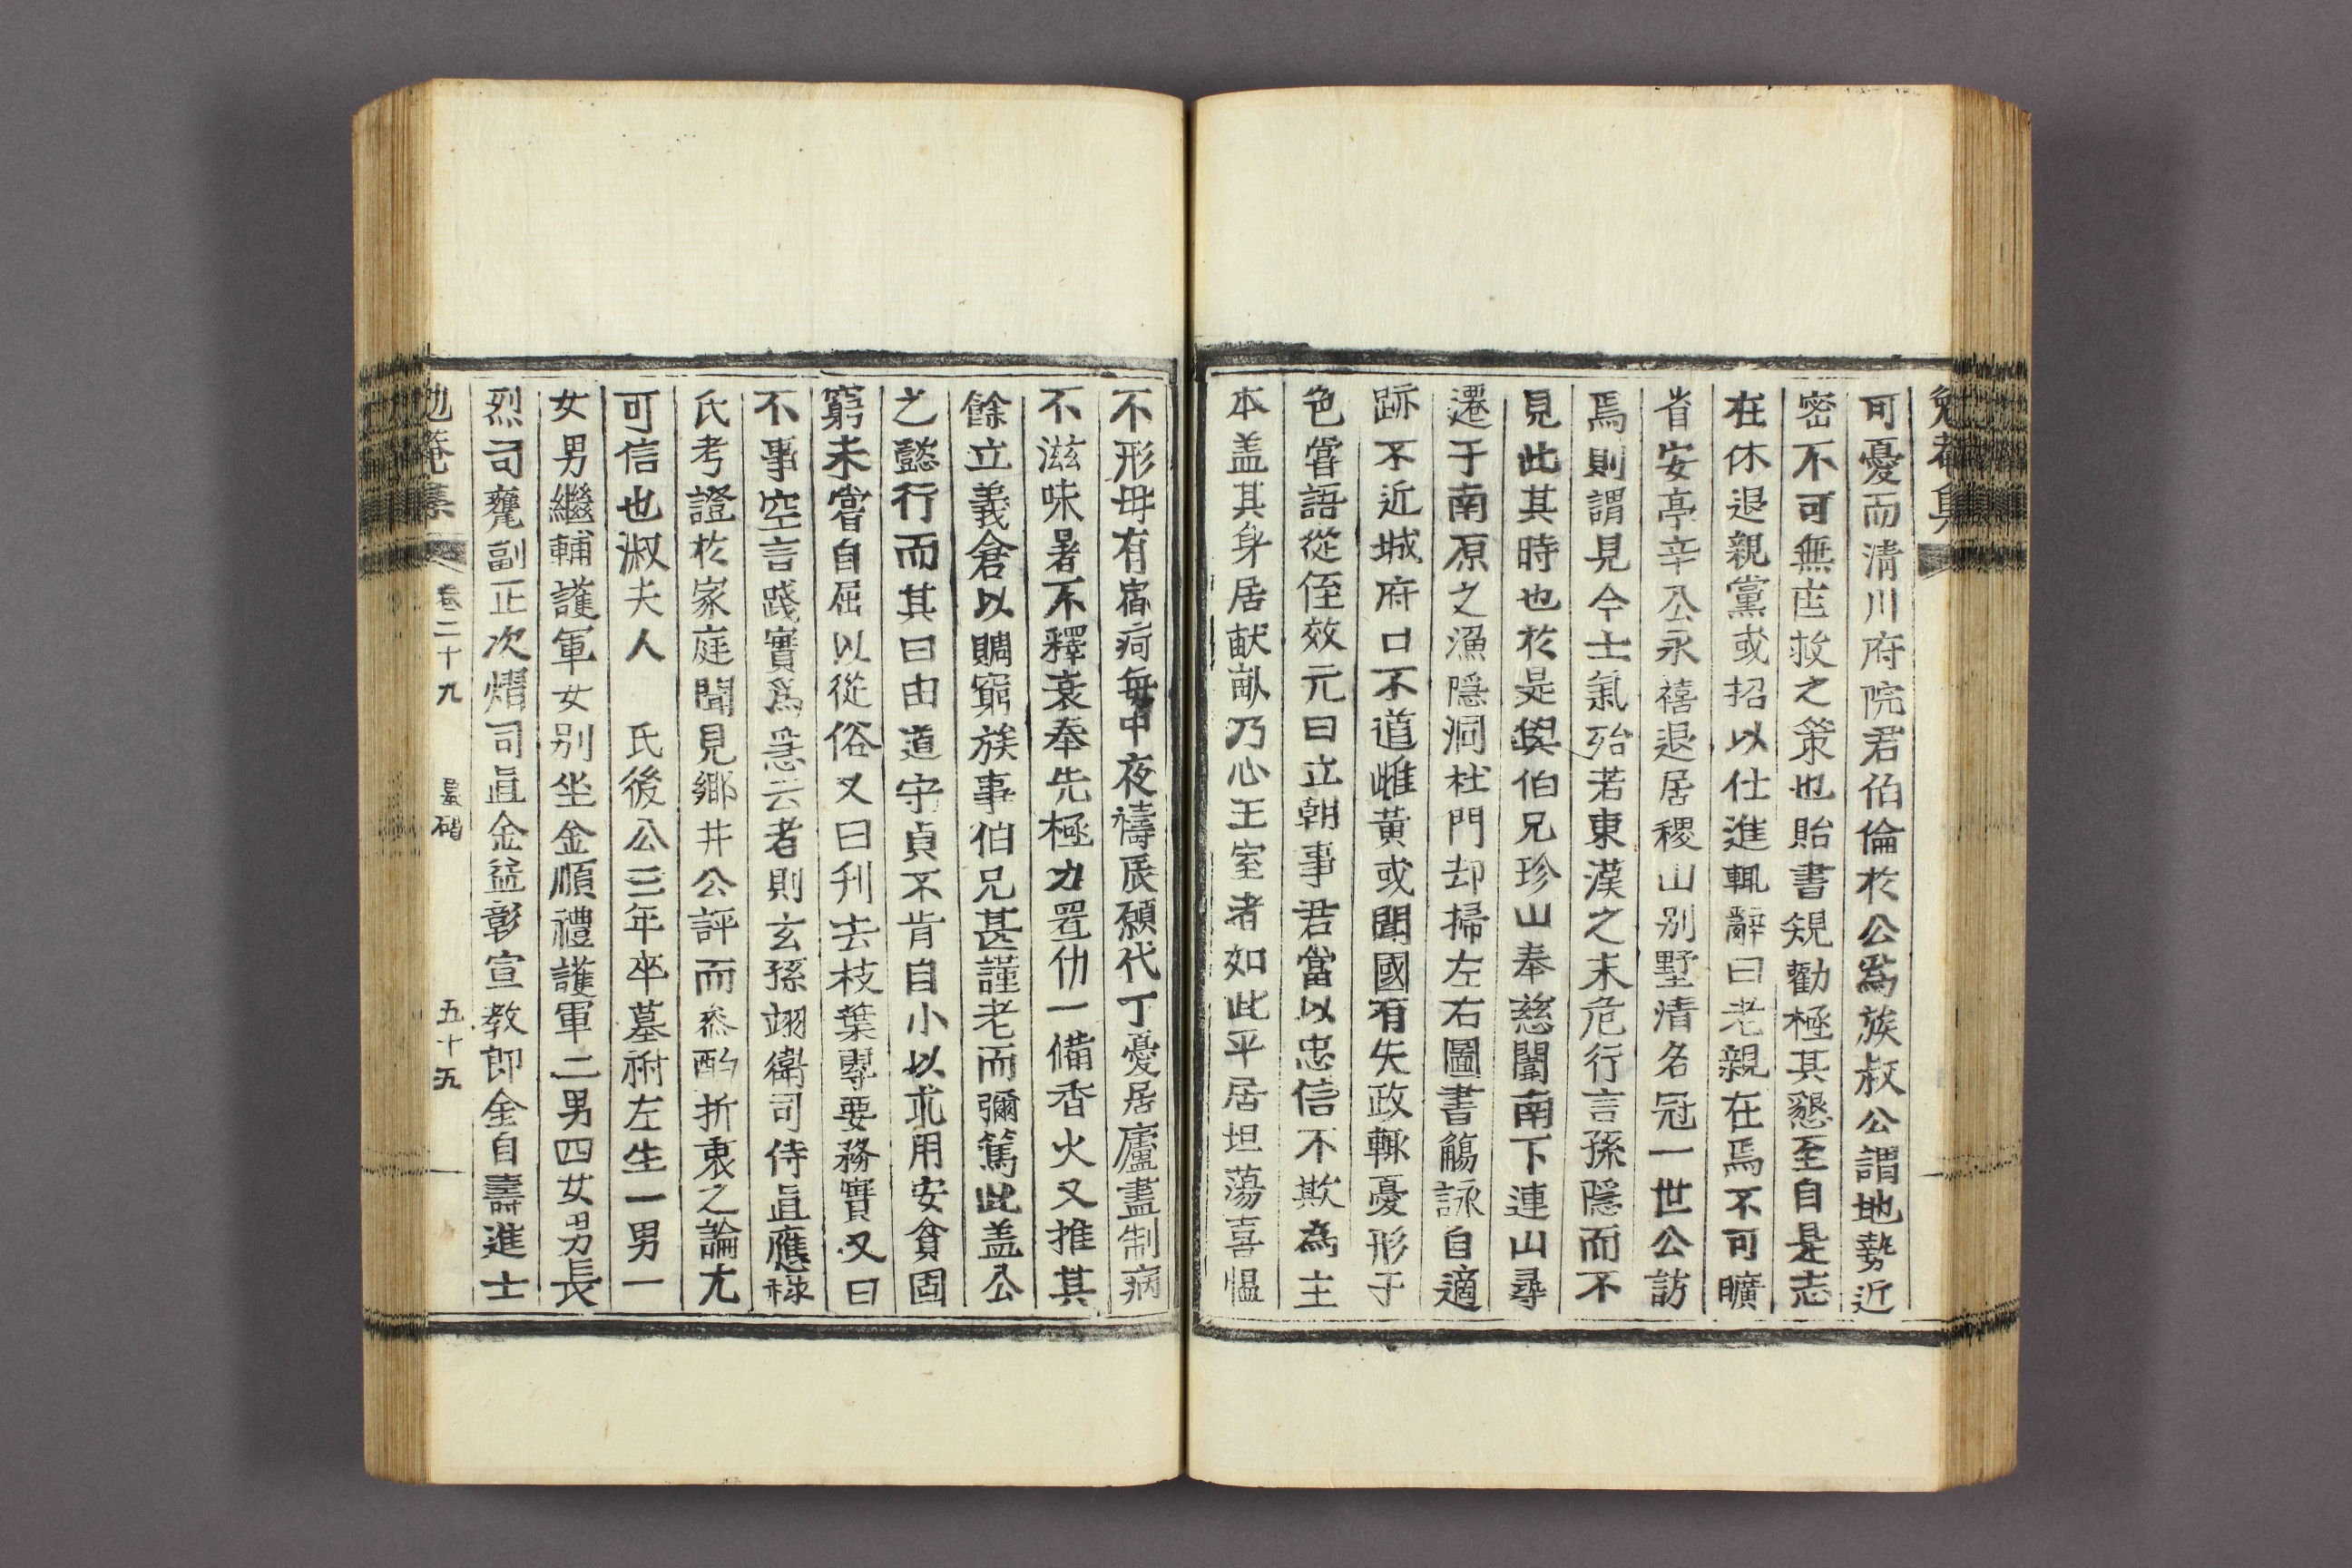 可憂而清川府院君伯倫於公爲族叔公謂地勢近
密不可無匡救之策也貽書規勸極其懇至自是志
在休退親黨或招以仕進輒辭曰老親在焉不可曠
省安亭辛公永禧退居稷山別墅清名冠一世公訪
焉則謂見今士氣殆若東漢之末危行言孫隱而不
見此其時也於是與伯兄珍山奉慈闈南下連山尋
遷于南原之漁隱洞杜門却掃左右圖書觴詠自適
跡不近城府口不道雌黃或聞國有失政輒憂形于
色嘗語從侄效元曰立朝事君當以忠信不欺為主
本盖其身居畎畝乃心王室者如此平居坦蕩喜慍
不形母有宿痾每中夜禱辰願代丁憂居廬盡制病
不滋味暑不釋衰奉先極力置仂一備香火又推其
餘立義倉以賙窮族事伯兄甚謹老而彌篤此盖公
之懿行而其曰由道守貞不肯自小以求用安貧固
窮未嘗自屈以從俗又曰刋去枝葉專要務實又曰
不事空言踐實爲急云者則玄孫翊衛司侍直應祿
氏考證於家庭聞見鄉井公評而叅酌折衷之論尤
可信也淑夫人　氏後公三年卒墓祔左生一男一
女男繼輔護軍女別坐金順禮護軍二男四女男長
烈司甕副正次熠司直金益彰宣教郎金自壽進士
勉菴集　卷二十九　墓碣　五十五